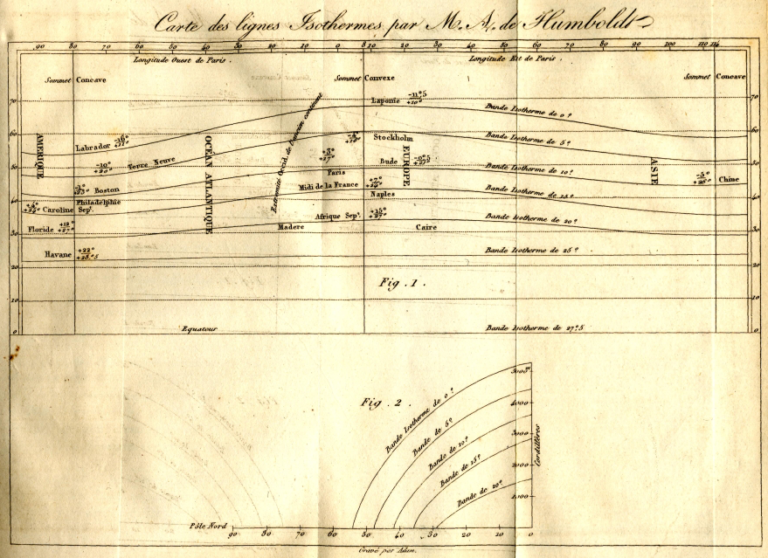 Carte des lignes Isothermes par M. A. de Humboldt
90 80 70 60 50 40 30 20 10 0 10 20 30 40 50 60 70 80 90 100 110
Longitude Ouest de Paris.
Longitude Est de Paris.
Sommet Concave
Sommet Convexe
Sommet Concave
70
70
60
60
50
50
40
40
30
30
20
20
10
10
0
0
AMERIQUE
OCEAN ATLANTIQUE
EUROPE
ASIE
Laponie
Bande Isotherme de 0°
Stockholm
Bande Isotherme de 5°
Labrador
Terre Neuve
Bude
Bande Isotherme de 10°
Paris
Chine
Boston
Midi de la France
Philadelphie
Naples
Caroline Sepe.
Afrique Sepe.
Bande Isotherme de 20°
Floride
Madere
Caire
Havane
+22°
Bande Isotherme de 25°
Fig. 1.
Equateur
Bande Isotherme de 27°5
Fig. 2.
Bande Isotherme de 0°
Bande de 5°
Bande de 10°
Bande de 15°
Bande de 20°
5000
4000
3000
2000
1000
Cordillères
Pôle Nord
90 80 70 60 50 40 30 20 10 0
Gravé par Adam.